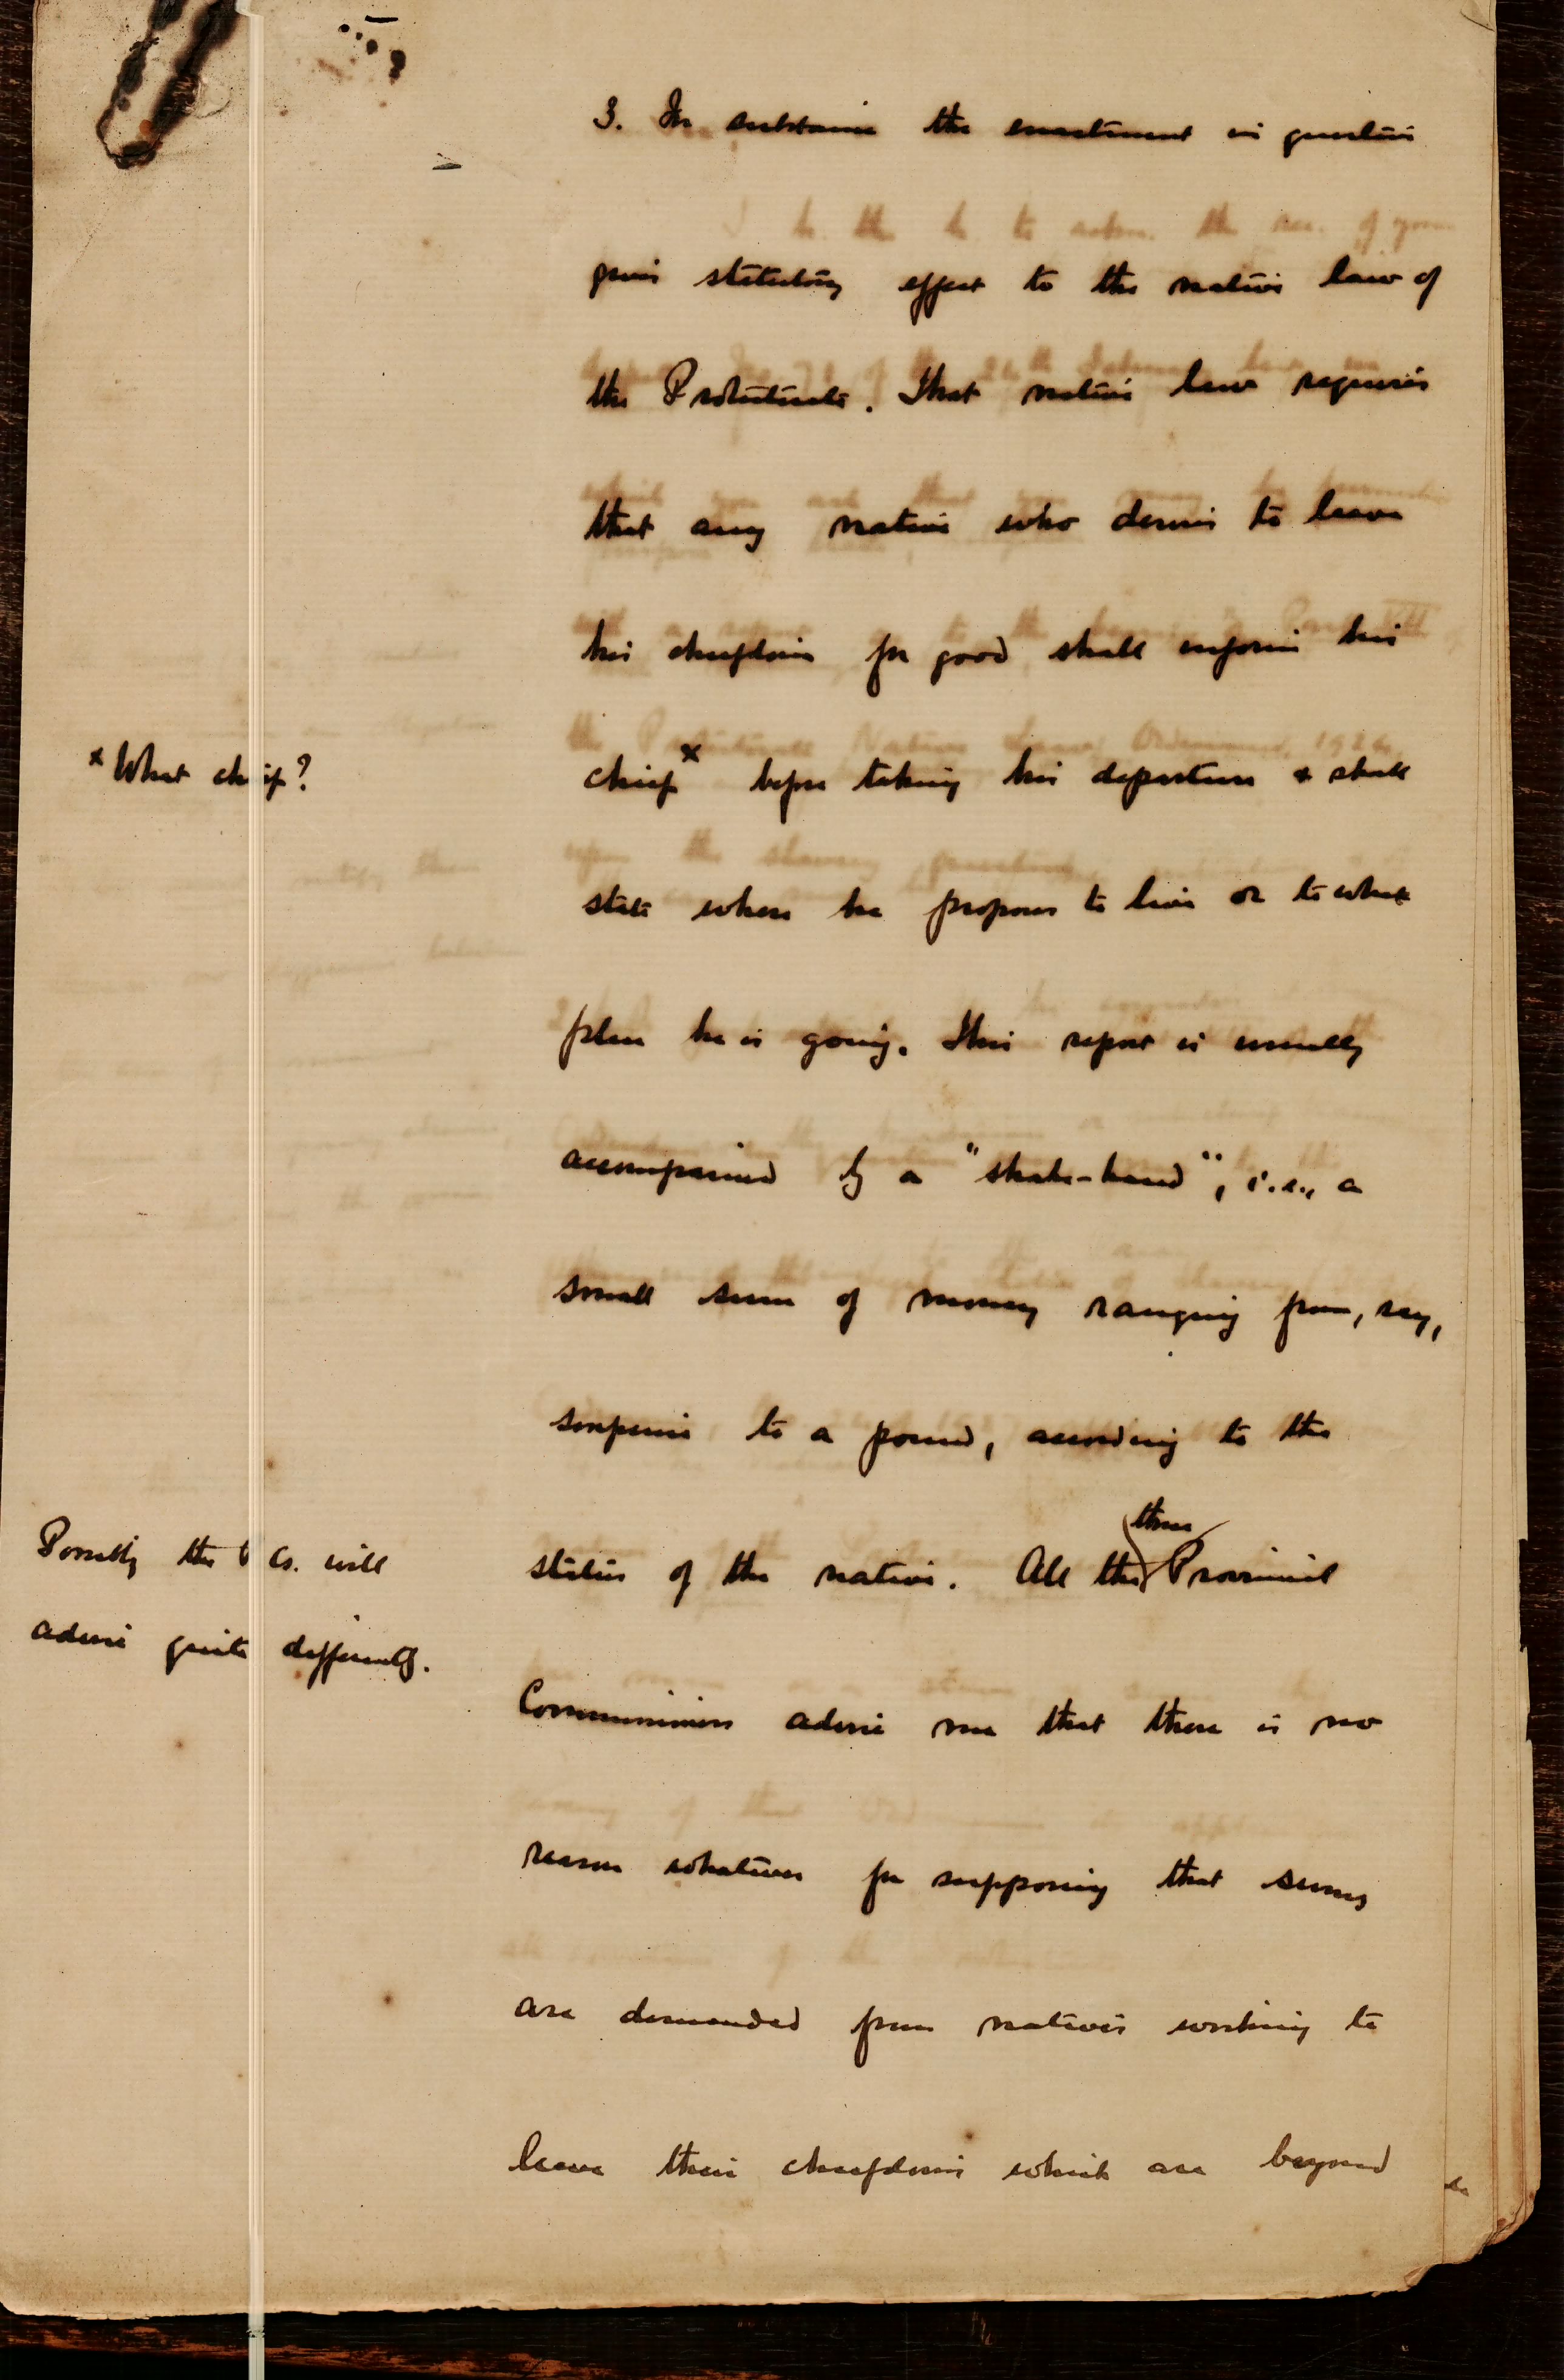 3. In substance the enactment in question
gives statutory effect to the native law of
the Protectorate. That native law requires
that any native who desires to leave
his chiefdom for good shall inform his
* What chief?
chief* before taking his departure & shall
state where he proposes to live or to what
place he is going. This report is usually
accompanied by a "shake-hand", i.e., a
small sum of money ranging from, say,
sixpence to a pound, according to the
three
Possibly the P Cs. will
status of the native. All the Provincial
advise quite differently.
Commissioners advise me that there is no
reason whatever for supposing that sums
are demanded from natives wishing to
leave their chiefdoms which are beyond